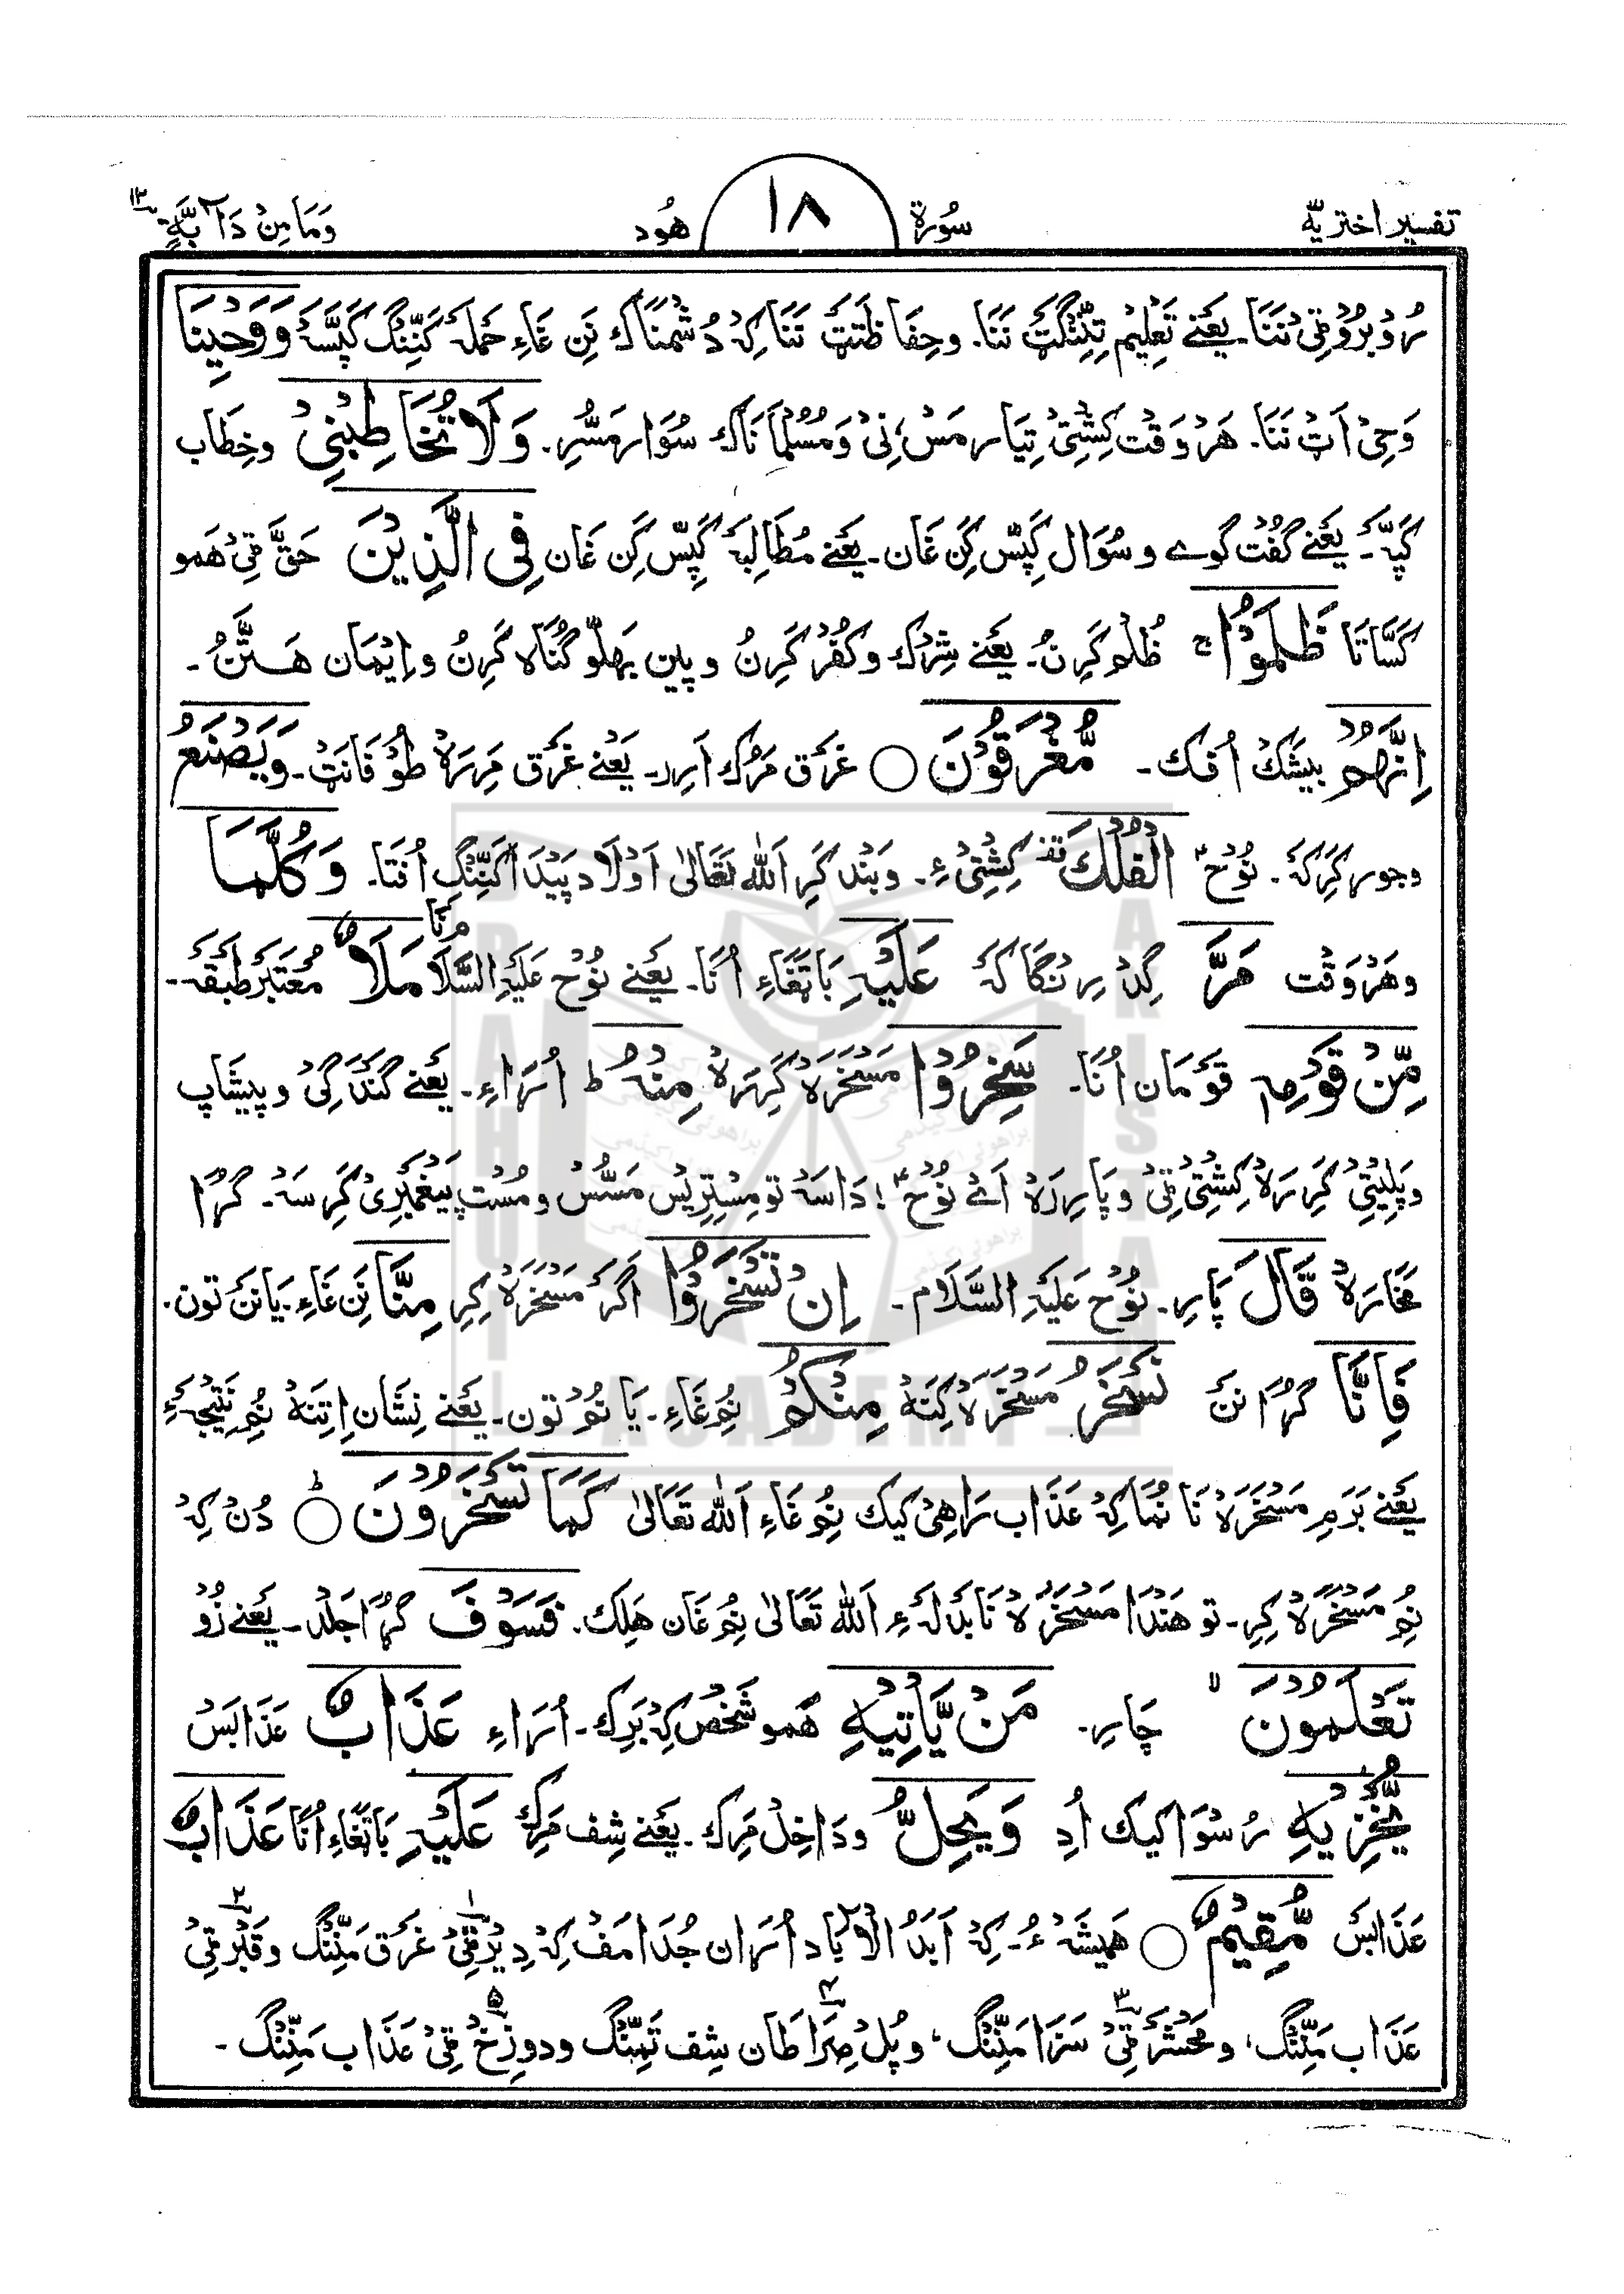 تفسیر اختریہ
سُورۃ
۱۸
ھُود
وَمَا مِنۡ دَآبَّۃٍ ۱۲
رُوۡبرُوۡ ٹِیۡ نَنَا۔ یَعۡنے تَعۡلِیۡم تِنِّنۡگٹِ نَنَا۔ وحِفَاظَتَٹ نَنَا کِہۡ دُشۡمَنَاک نَن غَاءِ حَملَہ کَنِّنۡگ کَپَّسَہ وَوَحۡیِنَا
وَحِیۡ اَٹ نَنَا۔ ھَرۡوَقۡت کِشۡتِیۡ تِیَار مَسۡ، نِیۡ وَمُسُلمَانَاک سُوَار مَسُّرِ۔ وَلَا تُخَاطِبۡنِیۡ وخِطَاب
کَپَّہ۔ یَعۡنے گُفۡت گوے و سُوَال کَپِّس کَن غَان۔ یَعۡنے مُطَالِبَہ کَپِّس کَن غَان فِی الَّذِیۡنَ حَقَّ ٹِیۡ ھَمو
کَسَّاتَا ظَلَمُوۡا ۚ ظُلۡم کَرِنُ۔ یَعۡنے شِرۡک وکُفۡر کَرِنُ وپین بَھلّو گُنَاہ کَرِنُ واِیۡمَان ھَتَنُ۔
اِنَّھُمۡ بیشَکۡ اُفک۔ مُّغۡرَقُوۡنَ ○ غرَق مَرُک اَرِر۔ یَعۡنے غَرَق مَرِرَہۡ طُوۡفَانَٹ۔ وَیَصۡنَعُ
وجوڑ کَرِکَہ۔ نُوۡح الۡفُلۡکَ قف کِشۡتِیۡ ءِ۔ وَبَند کَرِ اَللّٰہ تَعَالٰی اَوۡلَاد پَیۡدَا کَنِّنۡگ اُفتَا۔ وَکُلَّمَا
وھَرۡوَقۡت مَرَّ گِدۡرِنۡگَاکَہ عَلَیۡہِ بَاتَغَاءِ اُنَا۔ یَعۡنے نُوۡح عَلَیۡہِ السَّلَام نَا مَلَاٌ مُعۡتَبَر طَبَقَہ۔
مِّنۡ قَوۡمِہٖ قَوۡمَان اُنَا۔ سَخِرُوۡا مَسۡخَرَہۡ کَرِرَہۡ مِنۡہُ ؕ اُرَاءِ۔ یَعۡنے گَنۡدَگِیۡ وپِیشَاپ
وپَلِیۡتِیۡ کَرِرَہۡ کِشۡتِیۡ ٹِیۡ وپَارِرَہۡ اَے نُوۡح! دَاسَہۡ تو مِسۡتِرِیس مَسُّسۡ ومُسۡت پَیۡغَمۡبَرِیۡ کَرِسَہۡ۔ گُڑَا
مَخَارَہۡ قَالَ پَارِ۔ نُوۡح عَلَیۡہِ السَّلَام۔ اِنۡ تَسۡخَرُوۡا اَگَر مَسۡخَرَہۡ کِرِ مِنَّا نَن غَاءِ۔ یَا نَن تون۔
فَاِنَّا گُڑَا نَن نَسۡخَرُ مَسۡخَرَہۡ کِنَہۡ مِنۡکُمۡ نُم غَاءِ۔ یَا نُم تون۔ یَعۡنے نِشَان اِتِنَہۡ نُم نَتِیۡجَہءِ
یَعۡنے بَرَمِ مَسۡخَرَہۡ نَا نُمَا کِہۡ عَذَاب رَاھِیۡ کیک نُم غَاءِ اَللّٰہ تَعَالٰی کَمَا تَسۡخَرُوۡنَ ؕ○ دُنۡ کِہۡ
نُم مَسۡخَرَہۡ کِرِ۔ تو ھَنۡدَا مَسۡخَرَہۡ نَا بَدَلَہءِ اَللّٰہ تَعَالٰی نُم غَان ھَلِک۔ فَسَوۡفَ گُڑَا جَلۡد۔ یَعۡنے زُوۡ
تَعۡلَمُوۡنَ ۙ چَارِ۔ مَنۡ یَّاۡتِیۡہِ ھَمو شَخۡص کِہۡ بَرِک۔ اُرَاءِ عَذَابٌ عَذَابَسۡ
یُّخۡزِیۡہِ رُسۡوَا کیک اُد وَیَحِلُّ ودَاخِلۡ مَرِک۔ یَعۡنے شِف مَرِک عَلَیۡہِ بَاتَغَاءِ اُنَا عَذَابٌ
عَذَابَسۡ مُّقِیۡمٌ ○ ھَمِیشَہۡ ءُ۔ کِہۡ اَبَدُ الۡاٰبَاد اُرَان جُدَا مَفۡ کِہۡ دِیۡر ٹِیۡ ۱ غَرَق مَنِّنۡگ وقَبۡر ٹِیۡ ۲
عَذَاب مَنِّنۡگ، ومَحۡشَر ٹِیۡ ۳ سَزَا مَنِّنۡگ، وپُلۡ صِرَاطَان ۴ شِف تَمِّنۡگ ودوزِخۡ ٹِیۡ ۵ عَذَاب مَنِّنۡگ۔